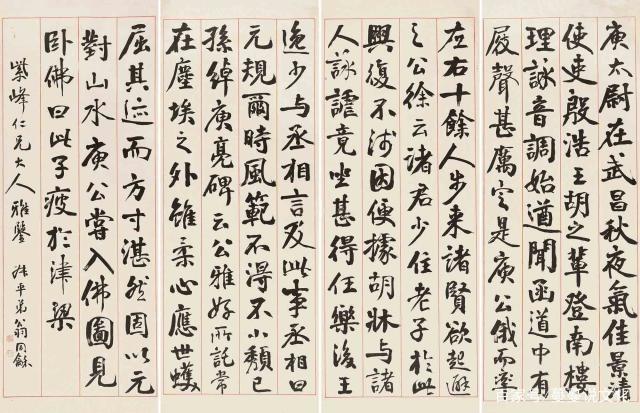 庾太尉在武昌秋夜氣佳景清
使吏殷浩王胡之輩登南樓
理詠音調始遒聞函道中有
屐聲甚厲定是庾公俄而率
左右十餘人步来諸賢欲起避
之公徐云諸君少住老子於此
興復不淺因便據胡牀与諸
人詠謔竟坐甚得任樂後王
逸少与丞相言及此事丞相曰
元規爾時風範不得不小頹已
孫綽庾亮碑云公雅好所託常
在塵埃之外雖柔心應世蠖
屈其迹而方寸湛然固以元
對山水庾公嘗入佛圖見
卧佛曰此子疲於津梁
紫峰仁兄大人雅鑒 叔平弟翁同龢